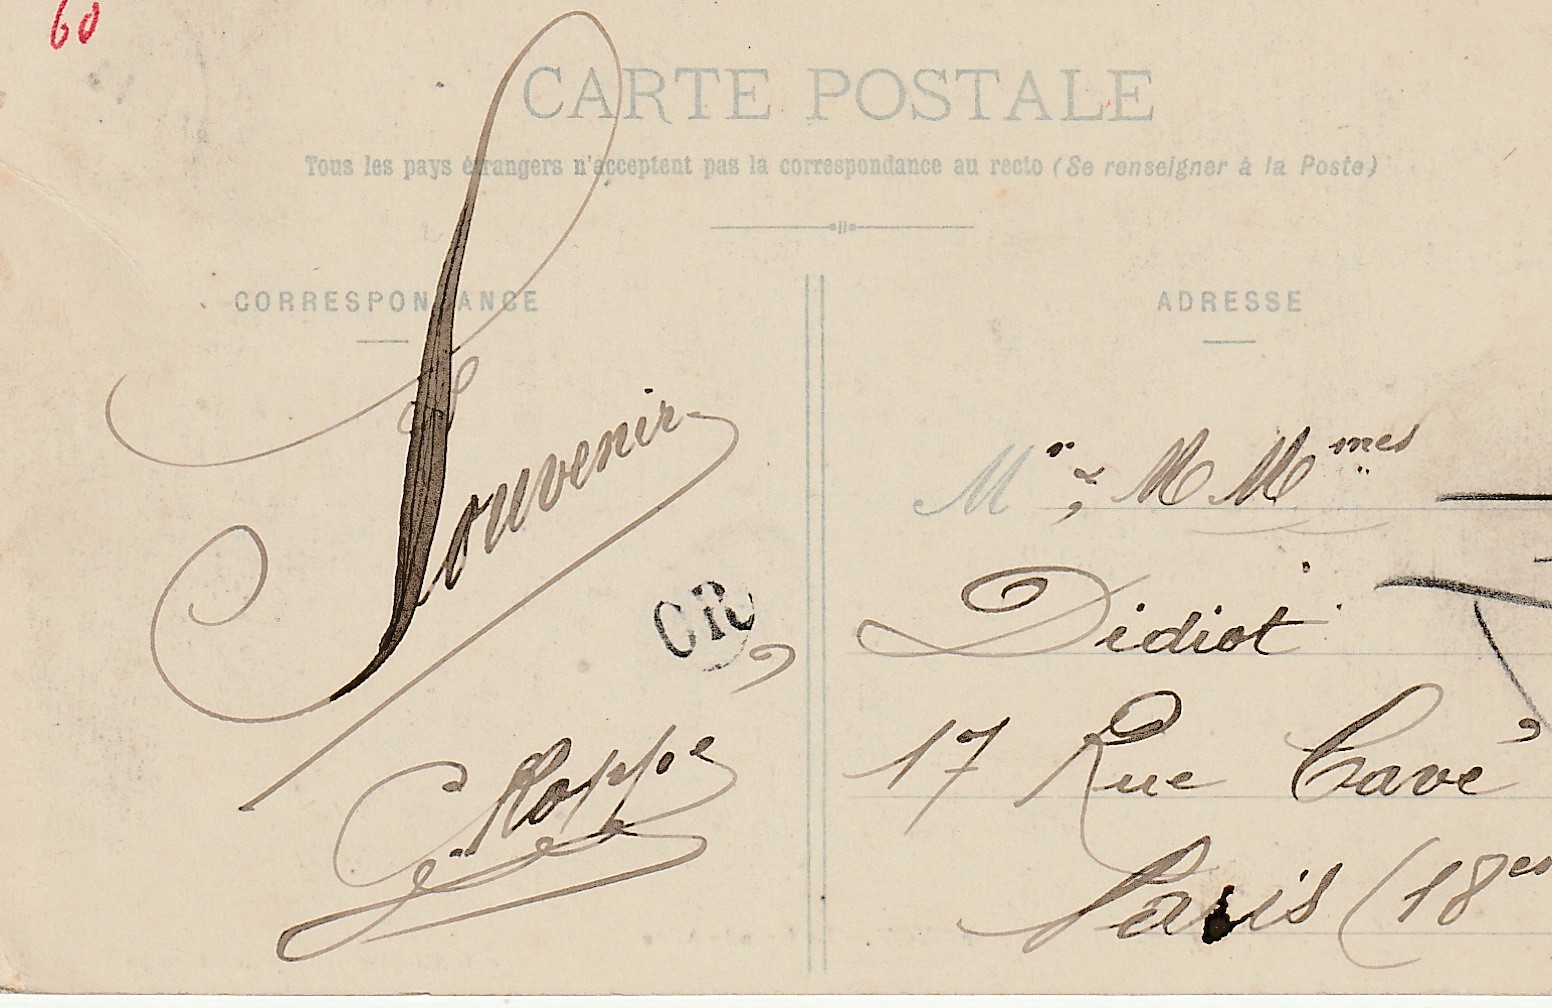 60
CARTE POSTALE
Tous les pays étrangers n'acceptent pas la correspondance au recto (Se renseigner à la Poste)
CORRESPONDANCE
ADRESSE
Souvenir
CR
Kloppe
Mr & MMmes
Didiot
17 Rue Cavé
Paris (18es